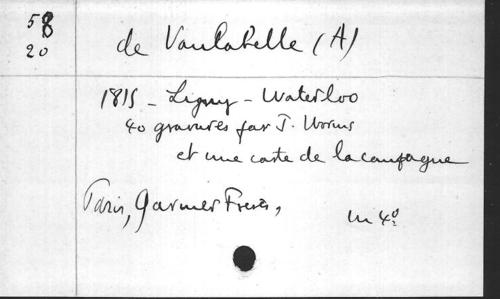 58
20
de Vaulabelle (A)
1815 - Ligny - Waterloo
40 gravures par J. Worms
et une carte de la campagne
Paris, Garnier Frères,
in 4º